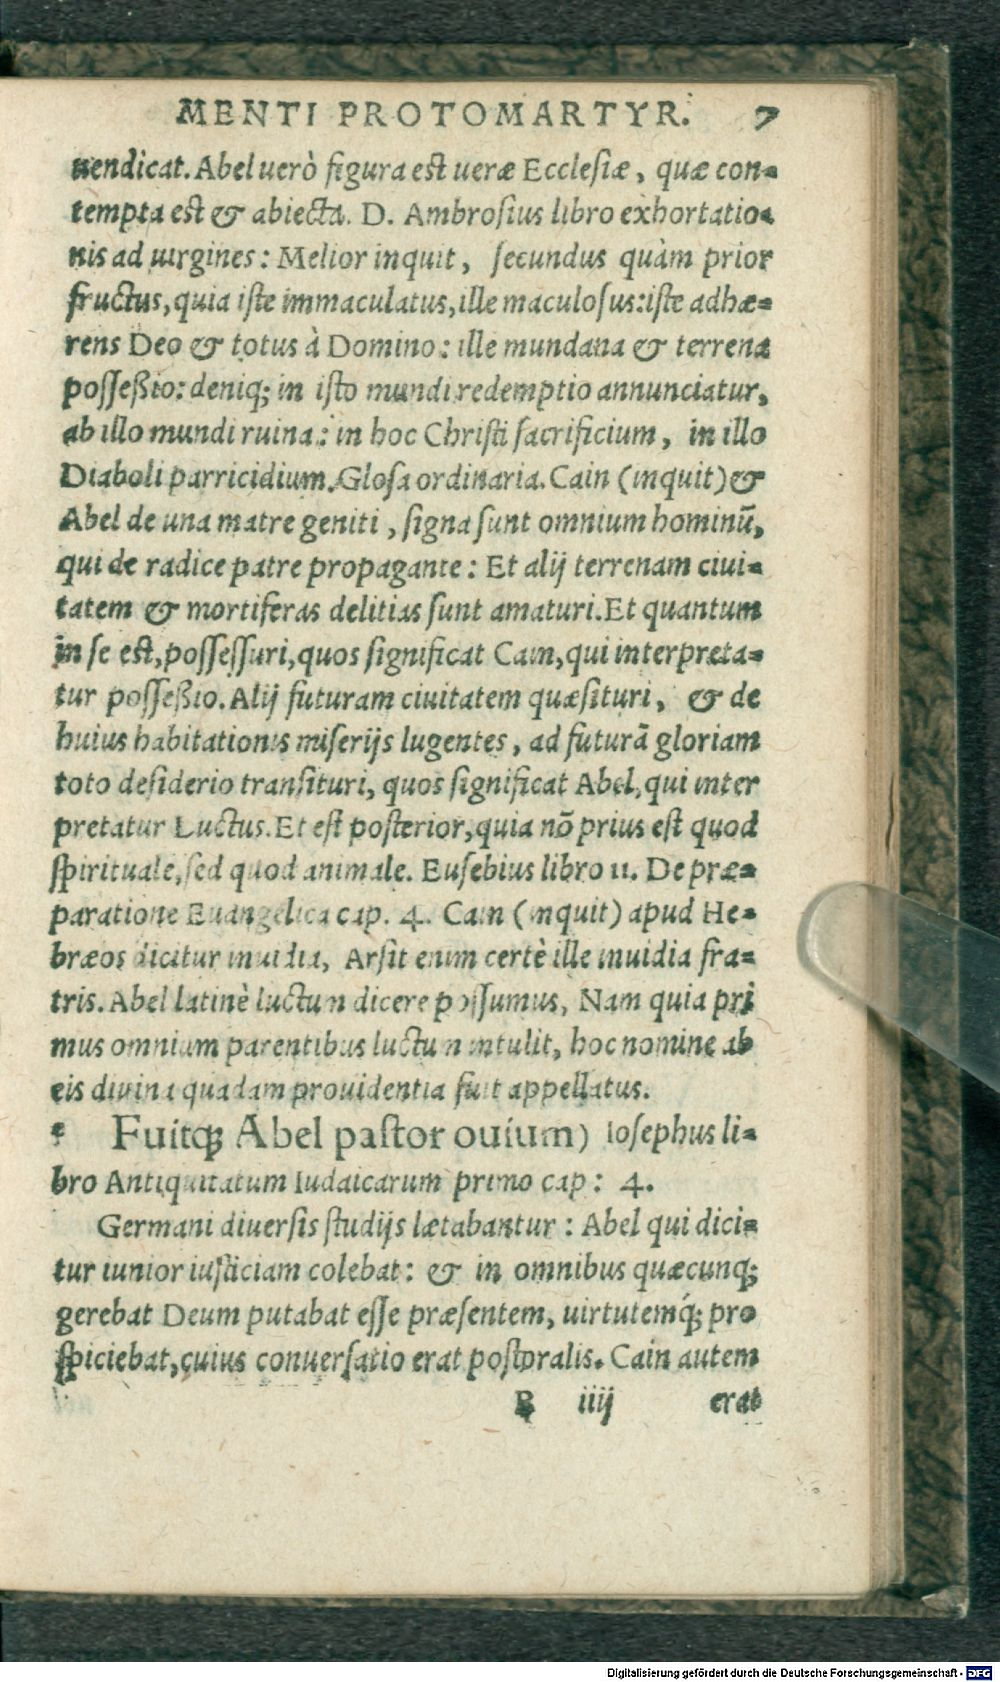 MENTI PROTOMARTYR. 7
uendicat. Abel uerò figura est ueræ Ecclesiæ, quæ con-
tempta est & abiecta. D. Ambrosius libro exhortatio-
nis ad uirgines: Melior inquit, secundus quàm prior
fructus, quia iste immaculatus, ille maculosus: iste adhæ-
rens Deo & totus à Domino: ille mundana & terrena
posseßio: deniq; in isto mundi redemptio annunciatur,
ab illo mundi ruina: in hoc Christi sacrificium, in illo
Diaboli parricidium. Glosa ordinaria. Cain (inquit) &
Abel de una matre geniti, signa sunt omnium hominū,
qui de radice patre propagante: Et alij terrenam ciui-
tatem & mortiferas delitias sunt amaturi. Et quantum
in se est, possessuri, quos significat Cain, qui interpreta-
tur posseßio. Alij futuram ciuitatem quæsituri, & de
huius habitationis miserijs lugentes, ad futurā gloriam
toto desiderio transituri, quos significat Abel, qui inter
pretatur Luctus. Et est posterior, quia nō prius est quod
spirituale, sed quod animale. Eusebius libro 11. De præ-
paratione Euangelica cap. 4. Cain (inquit) apud He-
bræos dicitur inuidia, Arsit enim certè ille inuidia fra-
tris. Abel latinè luctum dicere possumus, Nam quia pri
mus omnium parentibus luctum intulit, hoc nomine ab
eis diuina quadam prouidentia fuit appellatus.
Fuitq; Abel pastor ouium) Iosephus li-
bro Antiquitatum Iudaicarum primo cap: 4.
Germani diuersis studijs lætabantur: Abel qui dici-
tur iunior iusticiam colebat: & in omnibus quæcunq;
gerebat Deum putabat esse præsentem, uirtutemq́; pro
spiciebat, cuius conuersatio erat pastoralis. Cain autem
B iiij erat
Digitalisierung gefördert durch die Deutsche Forschungsgemeinschaft - DFG